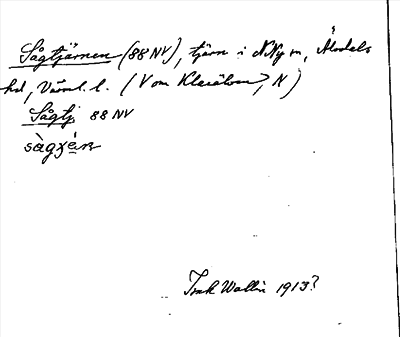 Sågtjärnen (88 NV), tjärn i N Ny sn, Älvdals
hd, Värml. l. (V om Klarälven, N)
Sågtj 88 NV
sàgxán
Wallin 1913?